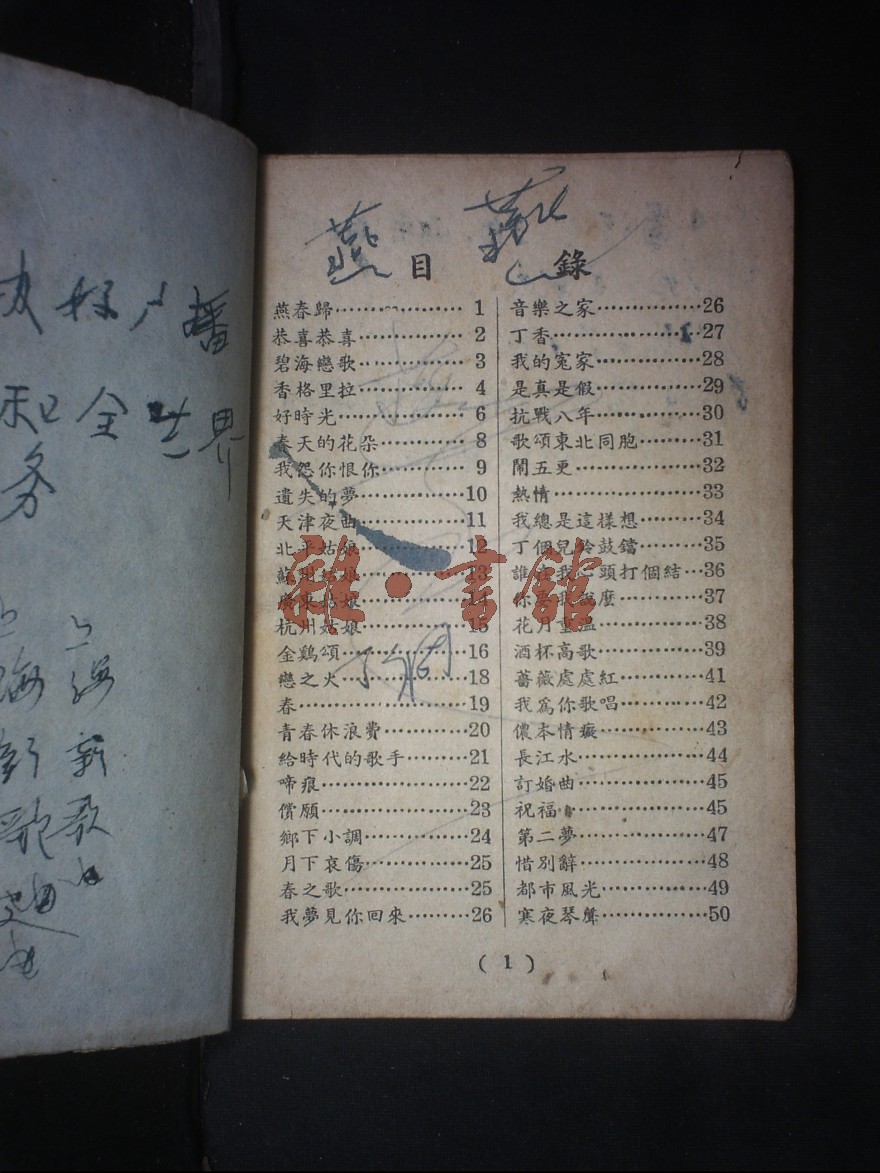 好 播
和 全 世 界
务
上 上
海 海
新 新
歌 歌
曲
燕
目 錄
燕春歸 1
恭喜恭喜 2
碧海戀歌 3
香格里拉 4
好時光 6
春天的花朵 8
我怨你恨你 9
遺失的夢 10
天津夜曲 11
北平姑娘 12
蘇州姑娘 13
廣東姑娘 14
杭州姑娘 15
金鷄頌 16
戀之火 18
春 19
青春休浪費 20
給時代的歌手 21
啼痕 22
償願 23
鄉下小調 24
月下哀傷 25
春之歌 25
我夢見你回來 26
音樂之家 26
丁香 27
我的冤家 28
是真是假 29
抗戰八年 30
歌頌東北同胞 31
鬧五更 32
熱情 33
我總是這樣想 34
丁個兒鈴鼓鐺 35
誰在我心頭打個結 36
你爲我說麼 37
花月重溫 38
酒杯高歌 39
薔薇處處紅 41
我爲你歌唱 42
儂本情癡 43
長江水 44
訂婚曲 45
祝福 45
第二夢 47
惜別辭 48
都市風光 49
寒夜琴聲 50
( 1 )
雜·書館